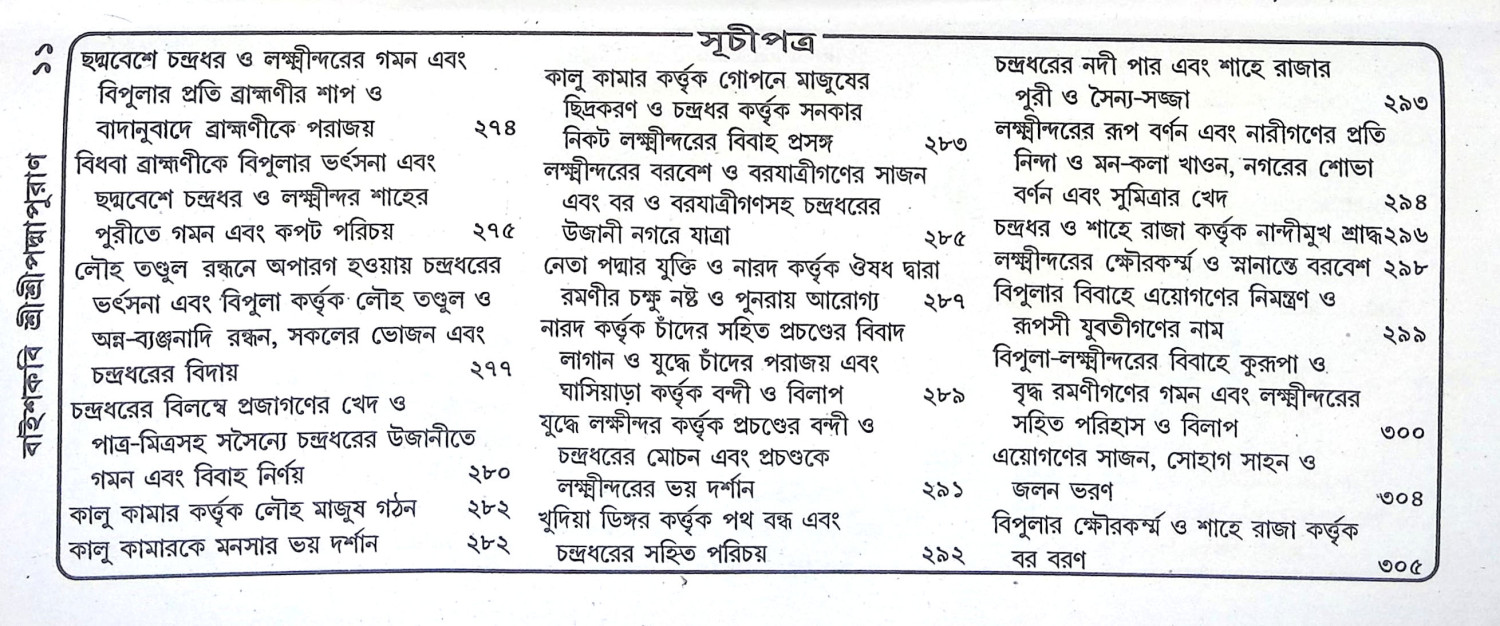 সূচীপত্র
১১
বাইশকবি শ্রীশ্রীপদ্মাপুরাণ
ছদ্মবেশে চন্দ্রধর ও লক্ষ্মীন্দরের গমন এবং
বিপুলার প্রতি ব্রাহ্মণীর শাপ ও
বাদানুবাদে ব্রাহ্মণীকে পরাজয় ২৭৪
বিধবা ব্রাহ্মণীকে বিপুলার ভর্ৎসনা এবং
ছদ্মবেশে চন্দ্রধর ও লক্ষ্মীন্দর শাহের
পুরীতে গমন এবং কপট পরিচয় ২৭৫
লৌহ তণ্ডুল রন্ধনে অপারগ হওয়ায় চন্দ্রধরের
ভর্ৎসনা এবং বিপুলা কর্ত্তৃক লৌহ তণ্ডুল ও
অন্ন-ব্যঞ্জনাদি রন্ধন, সকলের ভোজন এবং
চন্দ্রধরের বিদায় ২৭৭
চন্দ্রধরের বিলম্বে প্রজাগণের খেদ ও
পাত্র-মিত্রসহ সসৈন্যে চন্দ্রধরের উজানীতে
গমন এবং বিবাহ নির্ণয় ২৮০
কালু কামার কর্ত্তৃক লৌহ মাজুষ গঠন ২৮২
কালু কামারকে মনসার ভয় দর্শান ২৮২
কালু কামার কর্ত্তৃক গোপনে মাজুষের
ছিদ্রকরণ ও চন্দ্রধর কর্ত্তৃক সনকার
নিকট লক্ষ্মীন্দরের বিবাহ প্রসঙ্গ ২৮৩
লক্ষ্মীন্দরের বরবেশ ও বরযাত্রীগণের সাজন
এবং বর ও বরযাত্রীগণসহ চন্দ্রধরের
উজানী নগরে যাত্রা ২৮৫
নেতা পদ্মার যুক্তি ও নারদ কর্ত্তৃক ঔষধ দ্বারা
রমণীর চক্ষু নষ্ট ও পুনরায় আরোগ্য ২৮৭
নারদ কর্ত্তৃক চাঁদের সহিত প্রচণ্ডের বিবাদ
লাগান ও যুদ্ধে চাঁদের পরাজয় এবং
ঘাসিয়াড়া কর্ত্তৃক বন্দী ও বিলাপ ২৮৯
যুদ্ধে লক্ষীন্দর কর্ত্তৃক প্রচণ্ডের বন্দী ও
চন্দ্রধরের মোচন এবং প্রচণ্ডকে
লক্ষ্মীন্দরের ভয় দর্শান ২৯১
খুদিয়া ডিঙ্গর কর্ত্তৃক পথ বন্ধ এবং
চন্দ্রধরের সহিত পরিচয় ২৯২
চন্দ্রধরের নদী পার এবং শাহে রাজার
পুরী ও সৈন্য-সজ্জা ২৯৩
লক্ষ্মীন্দরের রূপ বর্ণন এবং নারীগণের প্রতি
নিন্দা ও মন-কলা খাওন, নগরের শোভা
বর্ণন এবং সুমিত্রার খেদ ২৯৪
চন্দ্রধর ও শাহে রাজা কর্ত্তৃক নান্দীমুখ শ্রাদ্ধ২৯৬
লক্ষ্মীন্দরের ক্ষৌরকর্ম্ম ও স্নানান্তে বরবেশ ২৯৮
বিপুলার বিবাহে এয়োগণের নিমন্ত্রণ ও
রূপসী যুবতীগণের নাম ২৯৯
বিপুলা-লক্ষ্মীন্দরের বিবাহে কুরূপা ও
বৃদ্ধ রমণীগণের গমন এবং লক্ষ্মীন্দরের
সহিত পরিহাস ও বিলাপ ৩০০
এয়োগণের সাজন, সোহাগ সাহন ও
জলন ভরণ ৩০৪
বিপুলার ক্ষৌরকর্ম্ম ও শাহে রাজা কর্ত্তৃক
বর বরণ ৩০৫